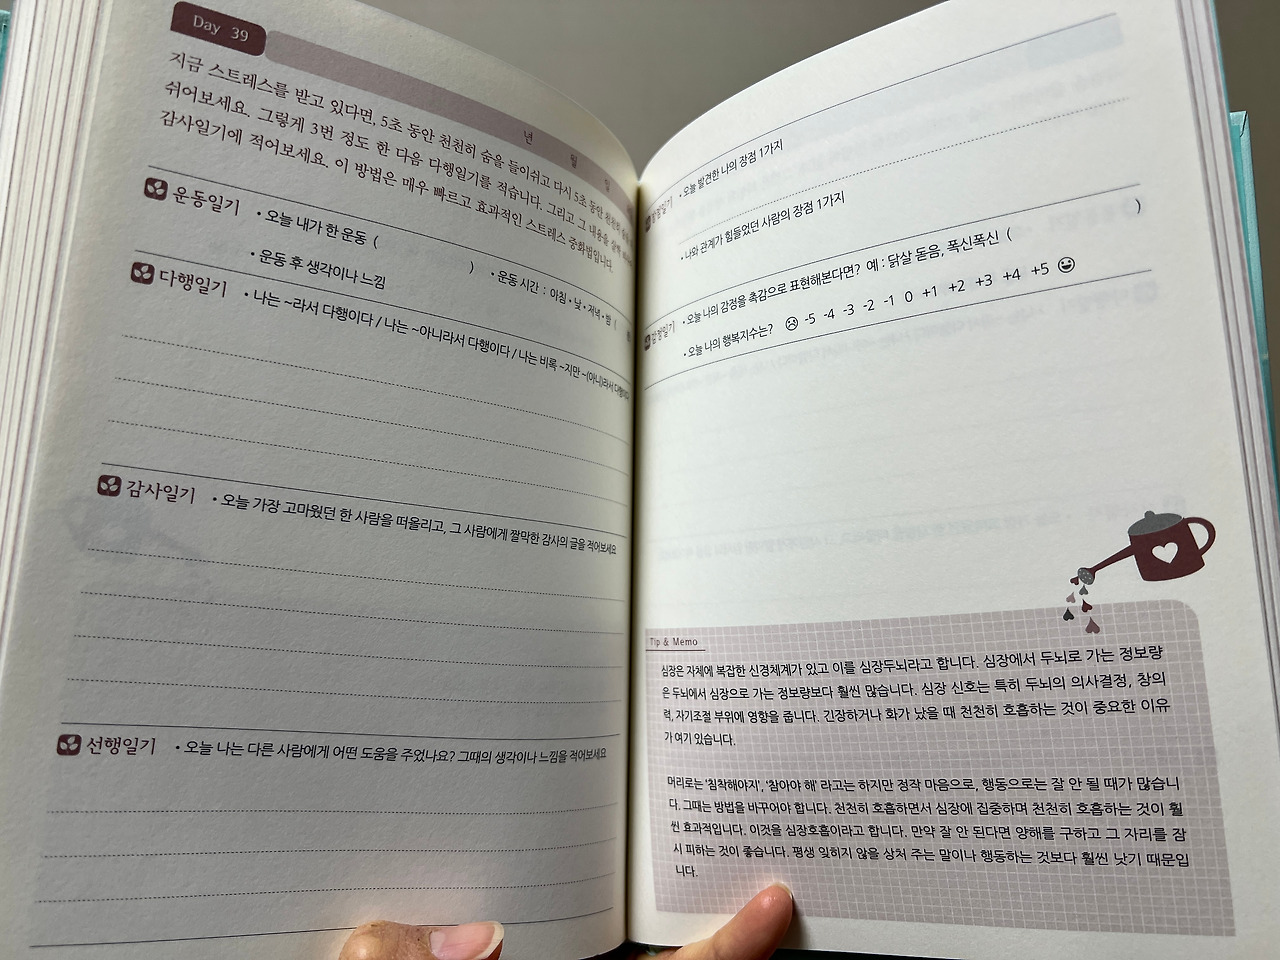 Day 39
년 월 일
지금 스트레스를 받고 있다면, 5초 동안 천천히 숨을 들이쉬고 다시 5초 동안 천천히 숨을
쉬어보세요. 그렇게 3번 정도 한 다음 다행일기를 적습니다. 그리고 그 내용을 살짝
감사일기에 적어보세요. 이 방법은 매우 빠르고 효과적인 스트레스 중화법입니다.
운동일기 • 오늘 내가 한 운동 ( ) • 운동 시간 : 아침 • 낮 • 저녁 • 밤 (
• 운동 후 생각이나 느낌
다행일기 • 나는 ~라서 다행이다 / 나는 ~아니라서 다행이다 / 나는 비록 ~지만 ~(아니)라서 다행이다
감사일기 • 오늘 가장 고마웠던 한 사람을 떠올리고, 그 사람에게 짤막한 감사의 글을 적어보세요
선행일기 • 오늘 나는 다른 사람에게 어떤 도움을 주었나요? 그때의 생각이나 느낌을 적어보세요
• 오늘 발견한 나의 장점 1가지
• 나와 관계가 힘들었던 사람의 장점 1가지
감정일기 • 오늘 나의 감정을 촉감으로 표현해본다면? 예 : 닭살 돋음, 폭신폭신 ( )
• 오늘 나의 행복지수는? -5 -4 -3 -2 -1 0 +1 +2 +3 +4 +5
Tip & Memo
심장은 자체에 복잡한 신경체계가 있고 이를 심장두뇌라고 합니다. 심장에서 두뇌로 가는 정보량
은 두뇌에서 심장으로 가는 정보량보다 훨씬 많습니다. 심장 신호는 특히 두뇌의 의사결정, 창의
력, 자기조절 부위에 영향을 줍니다. 긴장하거나 화가 났을 때 천천히 호흡하는 것이 중요한 이유
가 여기 있습니다.
머리로는 '침착해야지', '참아야 해' 라고는 하지만 정작 마음으로, 행동으로는 잘 안 될 때가 많습니
다. 그때는 방법을 바꾸어야 합니다. 천천히 호흡하면서 심장에 집중하며 천천히 호흡하는 것이 훨
씬 효과적입니다. 이것을 심장호흡이라고 합니다. 만약 잘 안 된다면 양해를 구하고 그 자리를 잠
시 피하는 것이 좋습니다. 평생 잊히지 않을 상처 주는 말이나 행동하는 것보다 훨씬 낫기 때문입
니다.